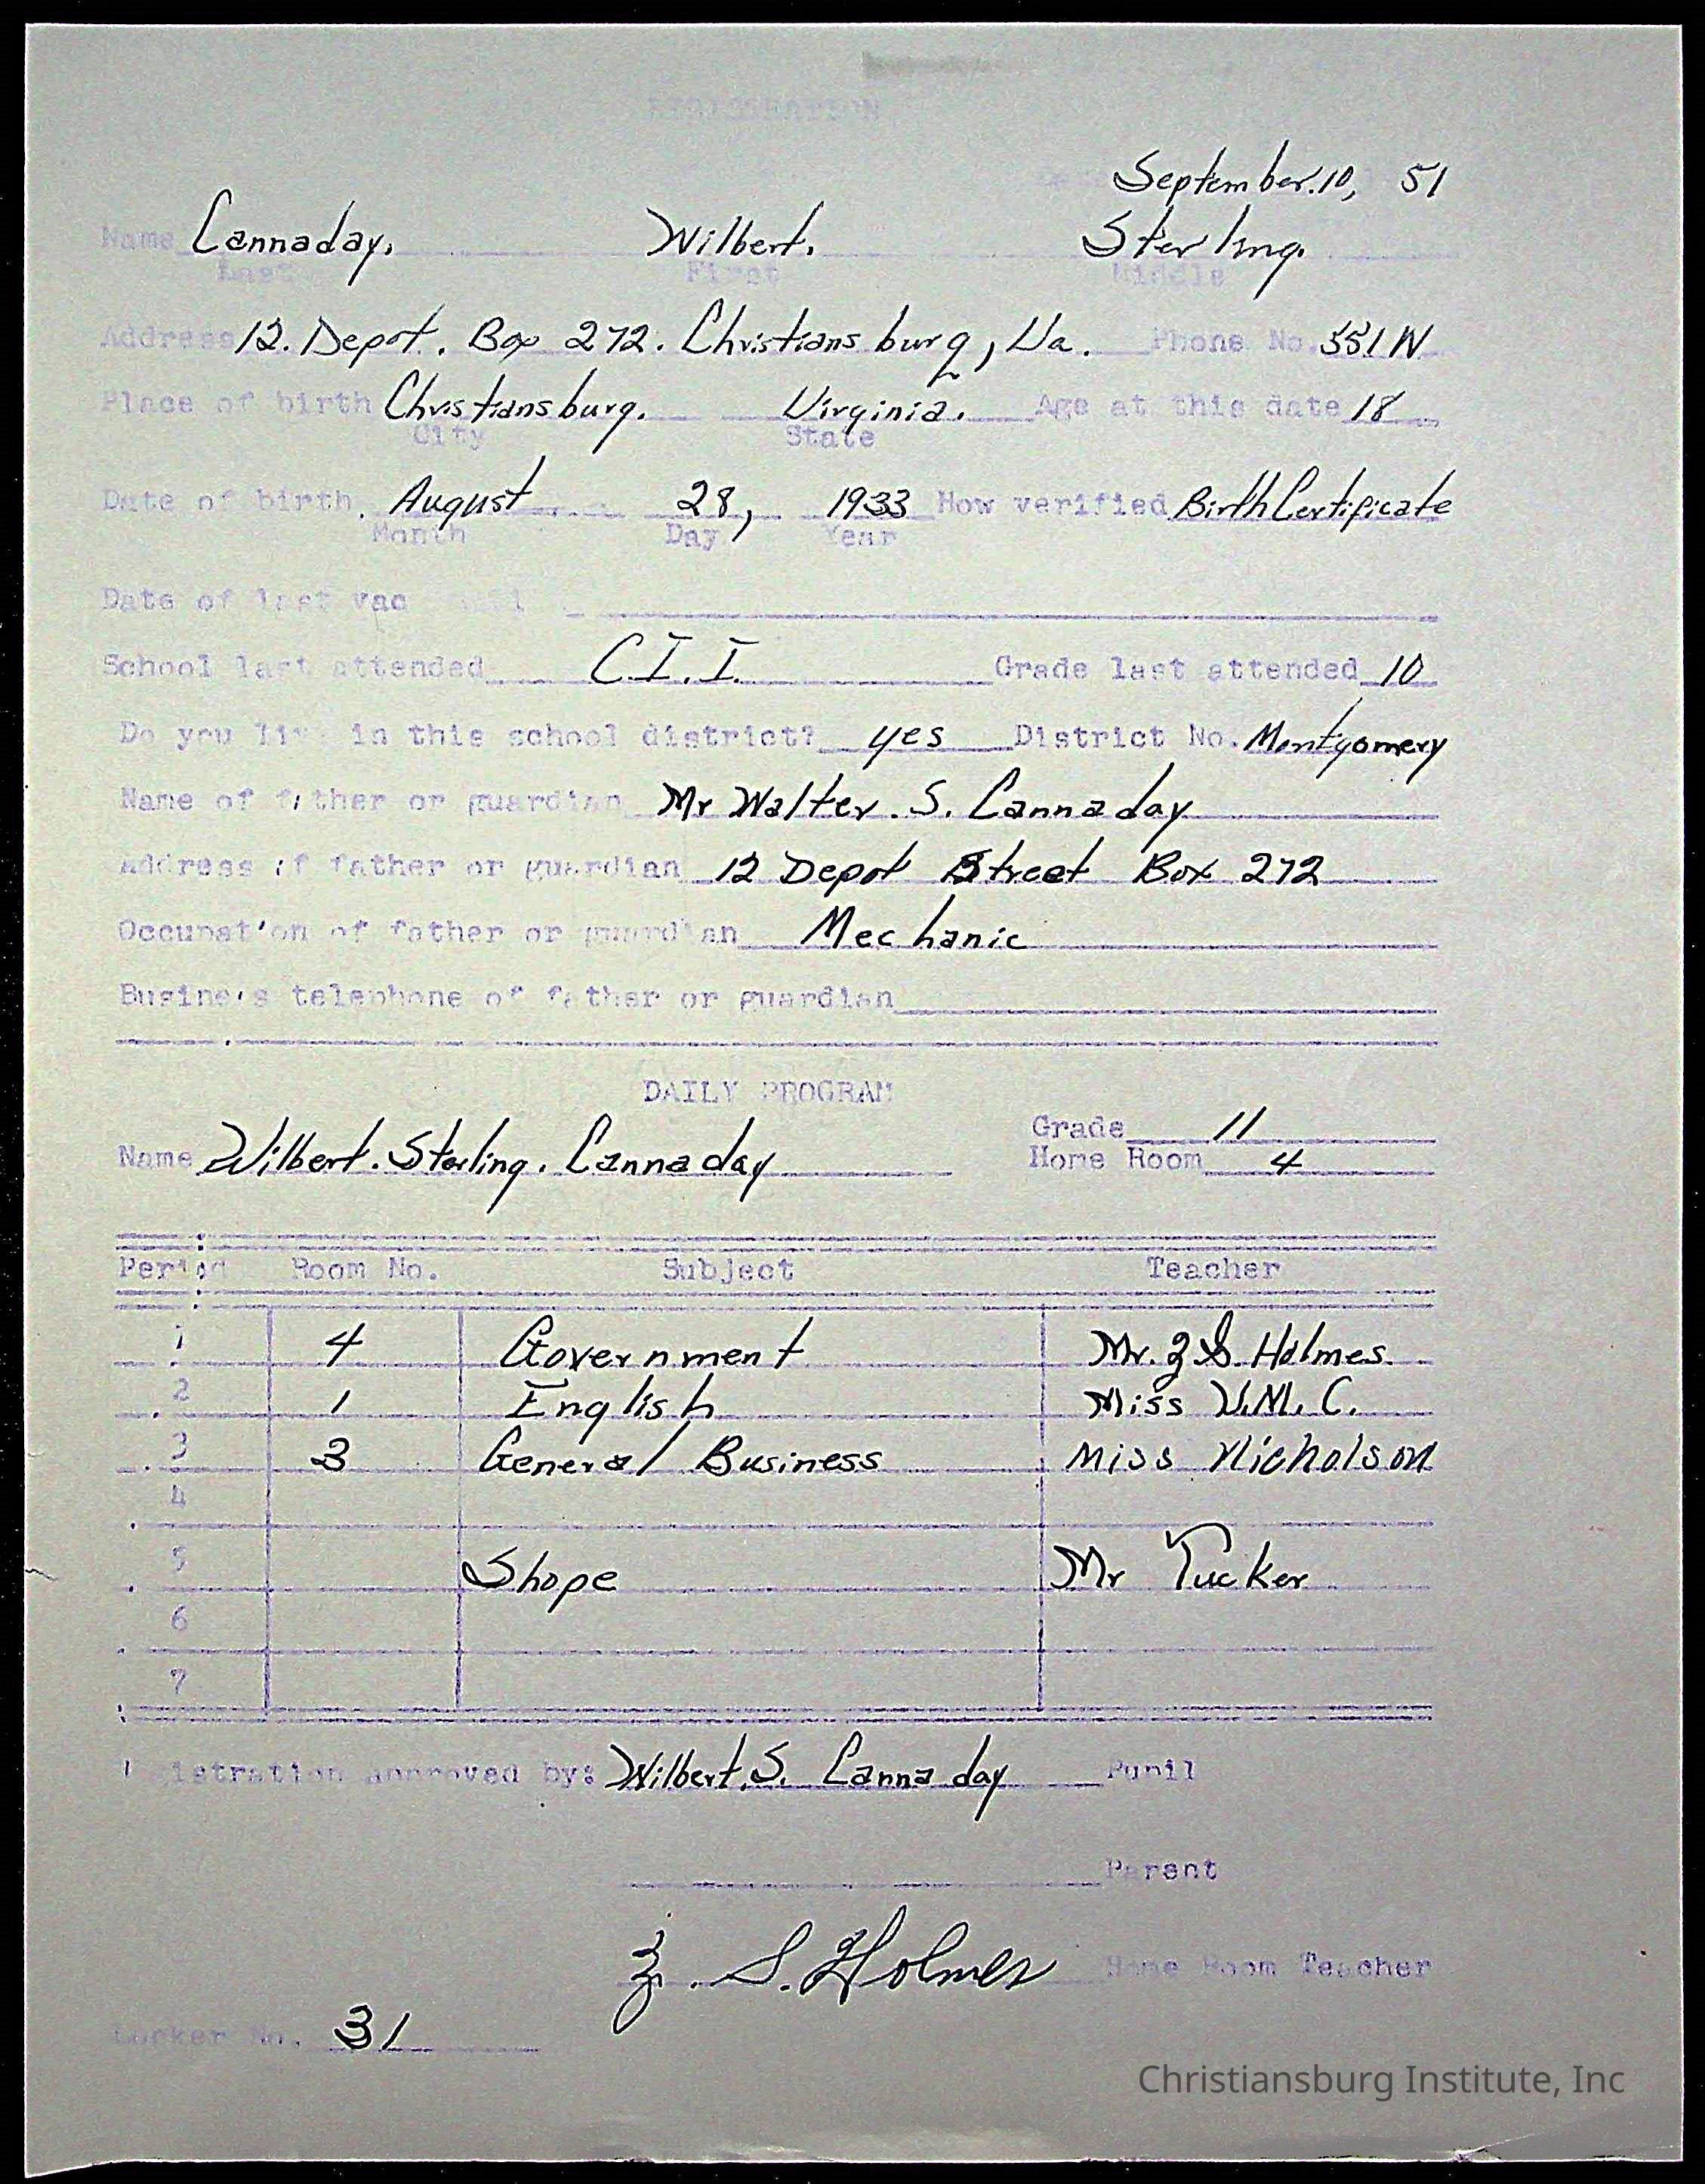 REGISTRATION
September.10, 51
Name Cannaday. Wilbert. Sterling.
Last First Middle
Address 12. Depot. Box 272. Christiansburg, Va. Phone No. 551W
Place of birth Christiansburg. Virginia. Age at this date 18
City State
Date of birth. August 28, 1933 How verified Birth Certificate
Month Day Year
Date of last vac
School last attended C.I.I. Grade last attended 10
Do you live in this school district? yes District No. Montgomery
Name of father or guardian Mr Walter. S. Cannaday
Address of father or guardian 12 Depot Street Box 272
Occupation of father or guardian Mechanic
Business telephone of father or guardian
DAILY PROGRAM
Grade 11
Name Wilbert. Sterling. Cannaday
Home Room 4
Period Room No. Subject Teacher
1 4 Government Mr. Z S. Holmes.
2 1 English Miss V.M.C.
3 3 General Business Miss Nicholson
4
5 Shope Mr Tucker
6
7
Registration approved by: Wilbert. S. Cannaday Pupil
Parent
Z. S. Holmes Home Room Teacher
Locker No. 31
Christiansburg Institute, Inc